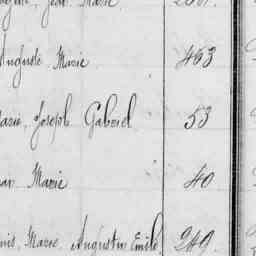 Jean Marie
Auguste Marie 463
Joseph Gabriel 53
Marie 40
Marie, Augustin Emile 249